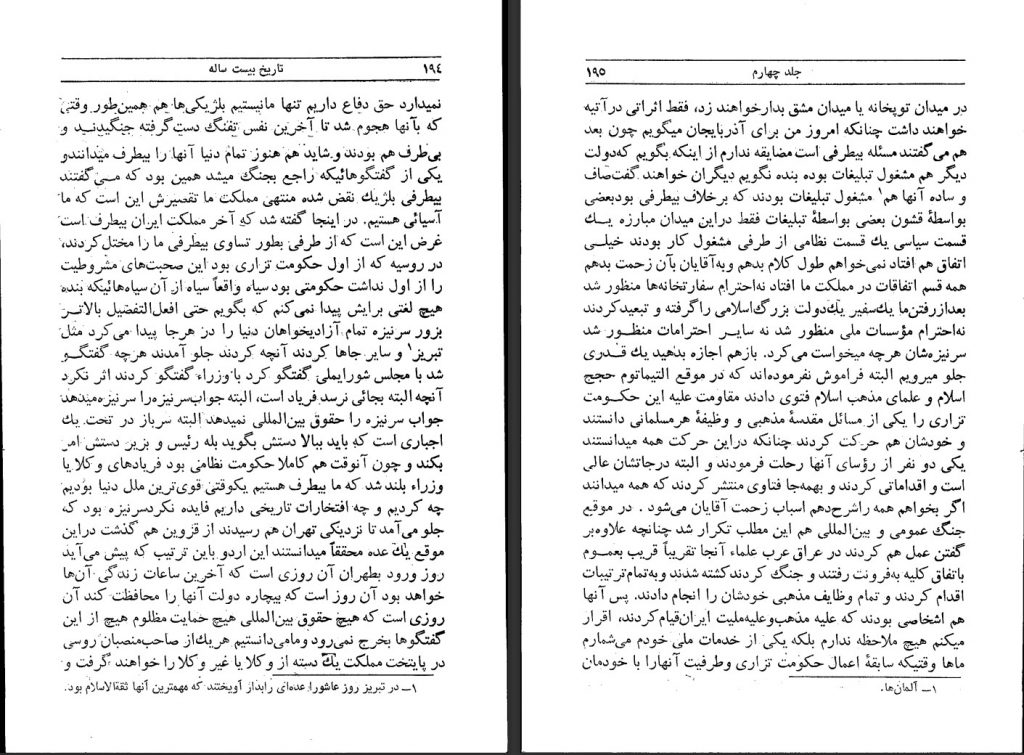 ۱۹۴ تاریخ بیست ساله
نمیدارد حق دفاع داریم تنها مانیستیم بلژیکی‌ها هم همین‌طور وقتی
که بآنها هجوم شد تا آخرین نفس تفنگ دست‌گرفته جنگیدنـد و
بی‌طرف هم بودند و شاید هم هنوز تمام دنیا آنها را بیطرف میدانندو
یکی از گفتگوهائیکه راجع بجنگ میشد همین بود که مـی‌گفتند
بیطرفی بلژیك نقض شده منتهی مملکت ما تقصیرش این است که ما
آسیائی هستیم. در اینجا گفته شد که آخر مملکت ایران بیطرف است
غرض این است که از طرفی بطور تساوی بیطرفی ما را مختل‌کردند،
در روسیه که از اول حکومت تزاری بود این صحبت‌های مشروطیت
را از اول نداشت حکومتی بود سیاه واقعاً سیاه از آن سیاه‌هائیکه بنده
هیچ لغتی برایش پیدا نمی‌کنم که بگویم حتی افعل‌التفضیل بالاتـر
بزور سرنیزه تمام آزادیخواهان دنیا را در هرجا پیدا می‌کرد مثل
تبریز۱ و سایر جاها کردند آنچه کردند جلو آمدند هرچه گفتگـو
شد با مجلس شورایملی گفتگو کرد با وزراء گفتگو کردند اثر نکرد
آنچه البته بجائی نرسد فریاد است، البته جواب‌سرنیزه‌را سرنیزه‌میدهد
جواب سرنیزه را حقوق بین‌المللی نمیدهد البته سرباز در تحت یك
اجباری است که باید ببالا دستش بگوید بله رئیس و بزیر دستش امر
بکند و چون آنوقت هم کاملا حکومت نظامی بود فریادهای وکلا یا
وزراء بلند شد که ما بیطرف هستیم یکوقتی قوی‌ترین ملل دنیا بودیم
چه کردیم و چه افتخارات تاریخی داریم فایده نکردسرنیزه بود که
جلو می‌آمد تا نزدیکی تهران هم رسیدند از قزوین هم گذشت دراین
موقع یك عده محققاً میدانستند این اردو باین ترتیب که پیش می‌آید
روز ورود بطهران آن روزی است که آخرین ساعات زندگـی آن‌ها
خواهد بود آن روز است که بیچاره دولت آنها را محافظت کند آن
روزی است که هیچ حقوق بین‌المللی هیچ حمایت مظلوم هیچ از این
گفتگوها بخرج نمی‌رود ومامی‌دانستیم هریك‌از صاحب‌منصبان روسی
در پایتخت مملکت یك دسته از وکلا یا غیر وکلا را خواهند گرفت و
۱ـ در تبریز روز عاشورا عده‌ای رابدار آویختند که مهمترین آنها ثقةالاسلام بود.
جلد چهارم ۱۹۵
در میدان توپخانه یا میدان مشق بدارخواهند زد، فقط اثراتی درآتیه
خواهند داشت چنانکه امروز من برای آذربایجان میگویم چون بعد
هم می‌گفتند مسئله بیطرفی است مضایقه ندارم از اینکه بگویم که‌دولت
دیگر هم مشغول تبلیغات بوده بنده نگویم دیگران خواهند گفت‌صاف
و ساده آنها هم۱ مشغول تبلیغات بودند که برخلاف بیطرفی بودبعضی
بواسطهٔ قشون بعضی بواسطهٔ تبلیغات فقط دراین میدان مبارزه یـك
قسمت سیاسی یك قسمت نظامی از طرفی مشغول کار بودند خیلـی
اتفاق هم افتاد نمی‌خواهم طول کلام بدهم وبه‌آقایان بآن زحمت بدهم
همه قسم اتفاقات در مملکت ما افتاد نه‌احترام سفارتخانه‌ها منظور شد
بعدازرفتن‌ما یك‌سفیر یك‌دولت بزرگ‌اسلامی راگرفته و تبعیدکردند
نه‌احترام مؤسسات ملی منظور شد نه سایـر احترامات منظـور شد
سرنیزه‌شان هرچه میخواست می‌کرد. بازهم اجازه بدهید یك قـدری
جلو میرویم البته فراموش نفرموده‌اند که در موقع التیماتوم حجج
اسلام و علمای مذهب اسلام فتوی دادند مقاومت علیه این حکـومت
تزاری را یکی از مسائل مقدسهٔ مذهبی و وظیفهٔ هرمسلمانی دانستند
و خودشان هم حرکت کردند چنانکه دراین حرکت همه میدانستند
یکی دو نفر از رؤسای آنها رحلت فرمودند و البته درجاتشان عالی
است و اقداماتی کردند و بهمه‌جا فتاوی منتشر کردند که همه میدانند
اگر بخواهم همه راشرح‌دهم اسباب زحمت آقایان می‌شود . در موقع
جنگ عمومی و بین‌المللی هم این مطلب تکرار شد چنانچه علاوه‌بر
گفتن عمل هم کردند در عراق عرب علماء آنجا تقریباً قریب بعمـوم
باتفاق کلیه به‌فرونت رفتند و جنگ کردندکشته شدند وبه‌تمام‌ترتیبات
اقدام کردند و تمام وظایف مذهبی خودشان را انجام دادند. پس آنها
هم اشخاصی بودند که علیه مذهب‌وعلیه‌ملیت ایران‌قیام‌کردند، اقرار
میکنم هیچ ملاحظه ندارم بلکه یکی از خدمات ملی خودم می‌شمارم
ماها وقتیکه سابقهٔ اعمال حکومت تزاری وطرفیت آنهارا با خودمان
۱ـ آلمان‌ها.